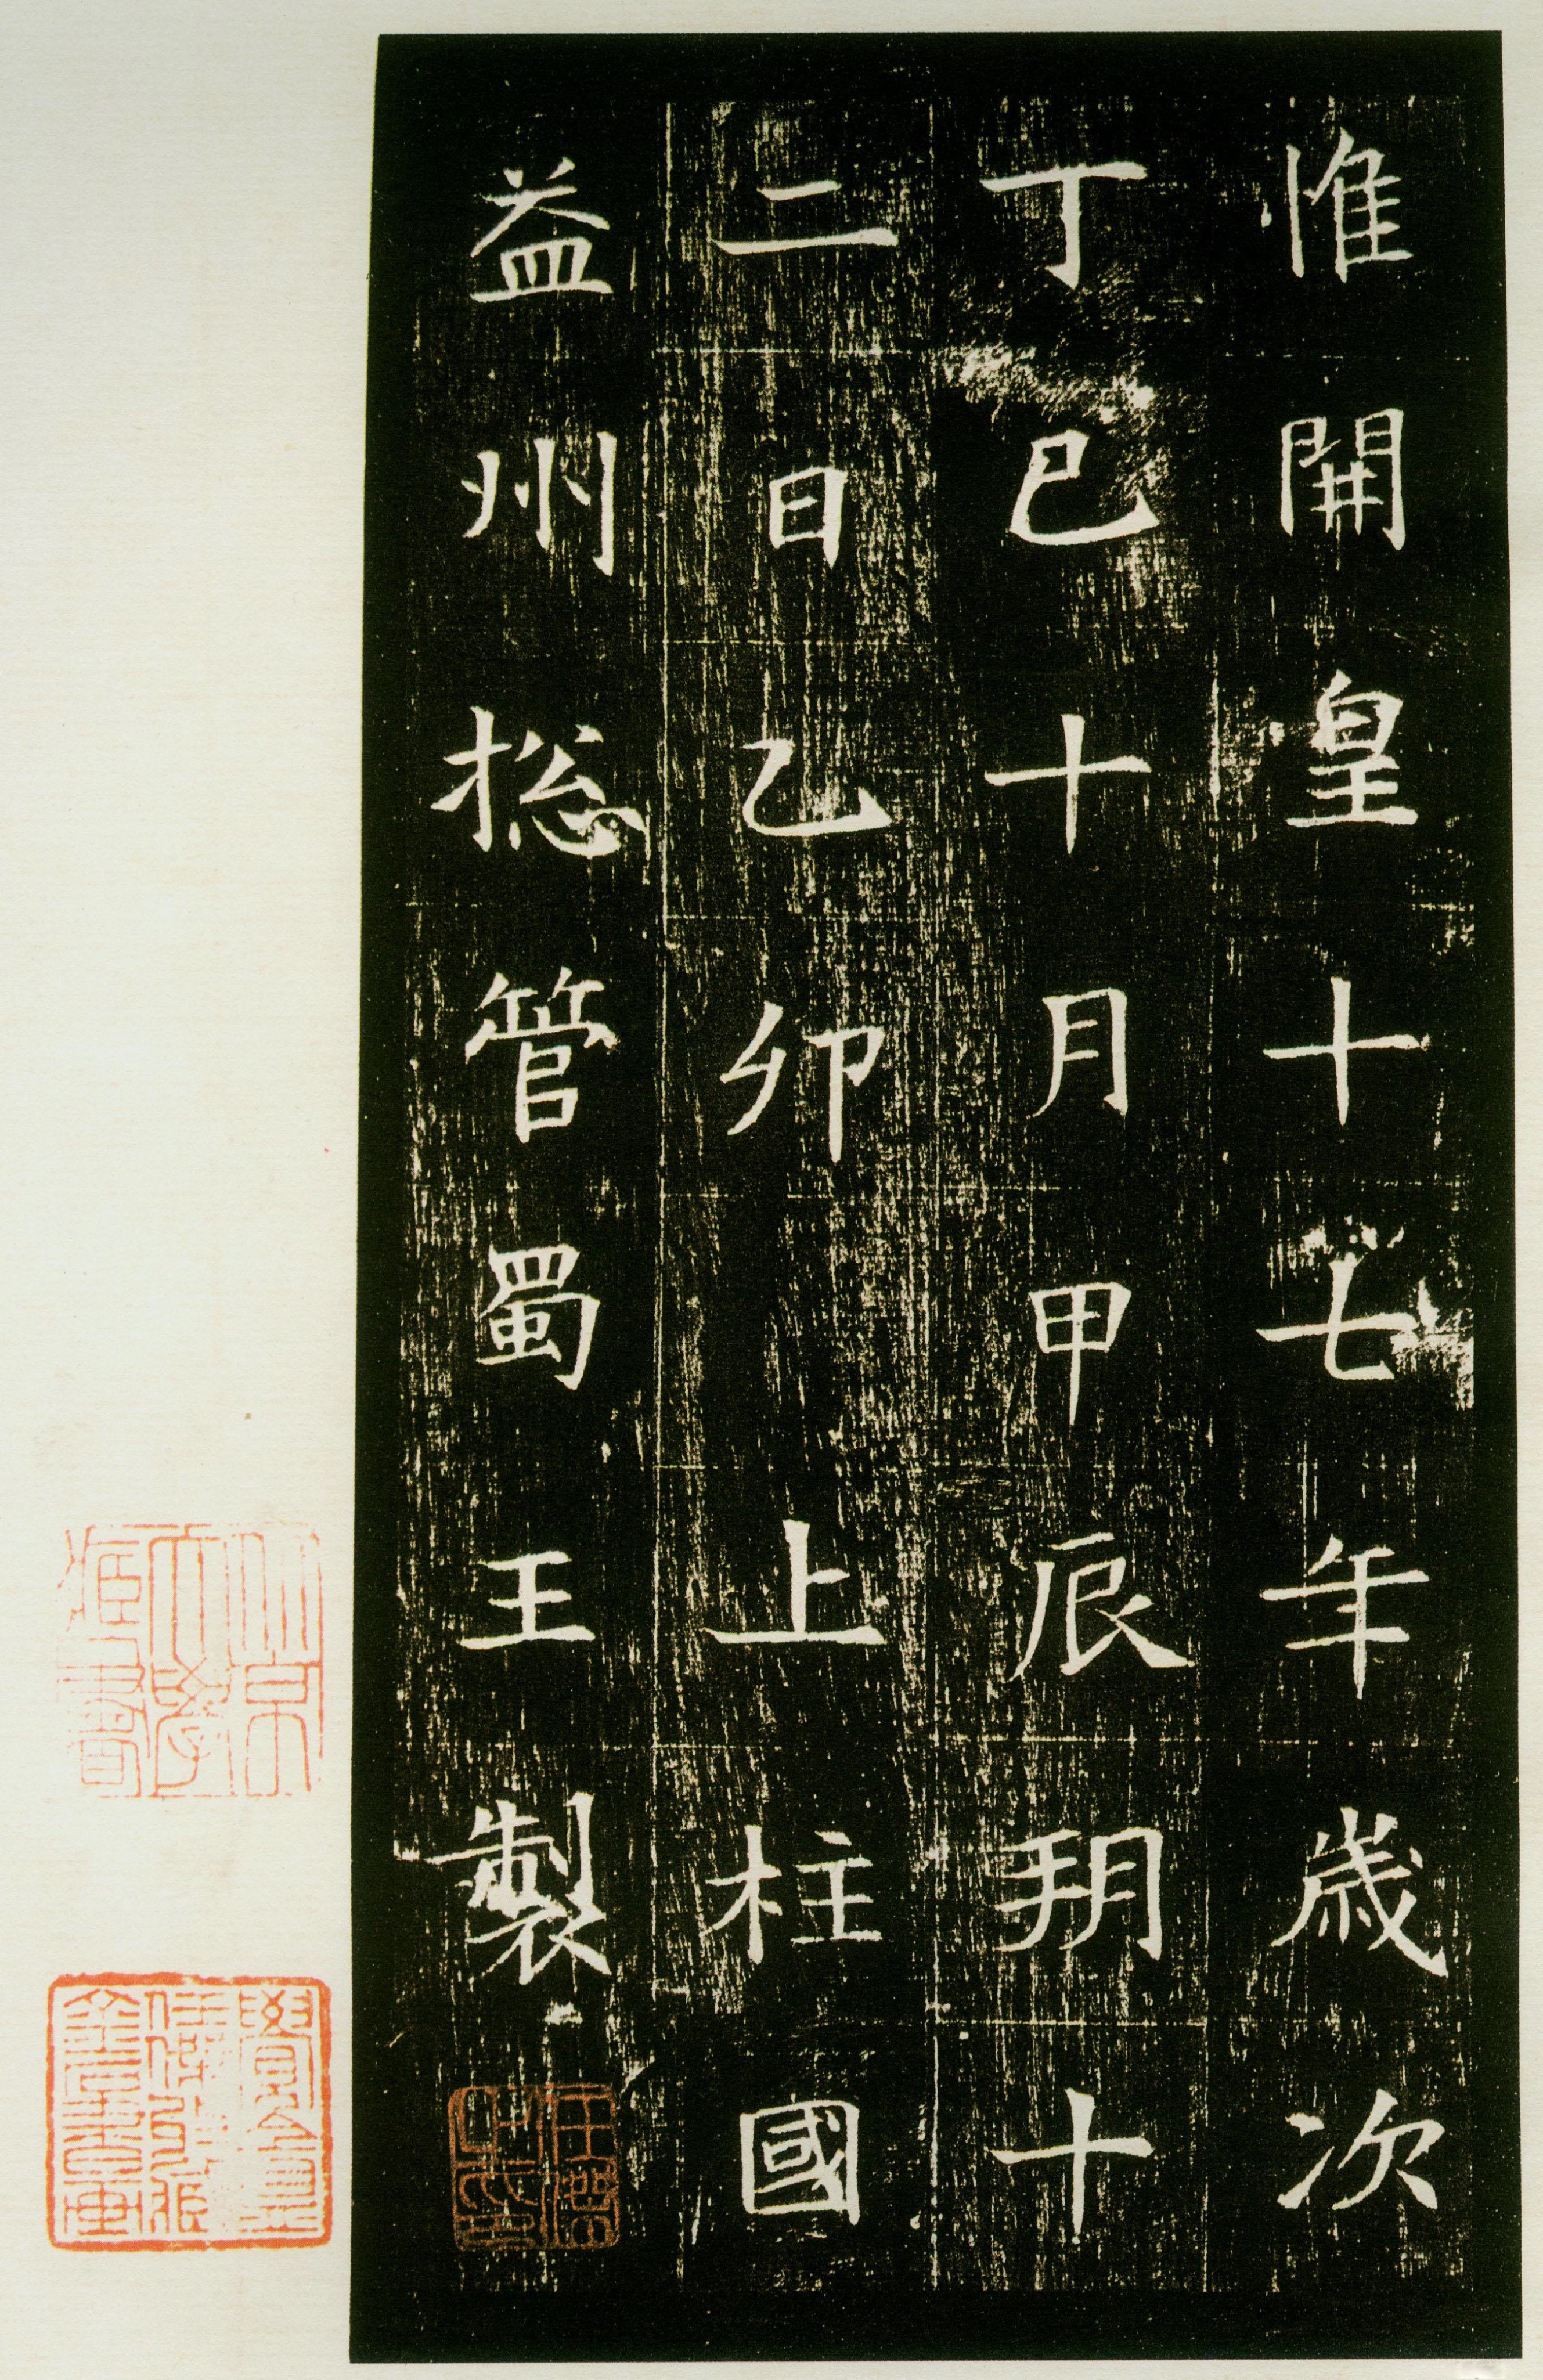 惟開皇十七年歲次
丁巳十月甲辰朔十
二日乙卯 上柱國
益州捴管蜀王製
北京大學藏書